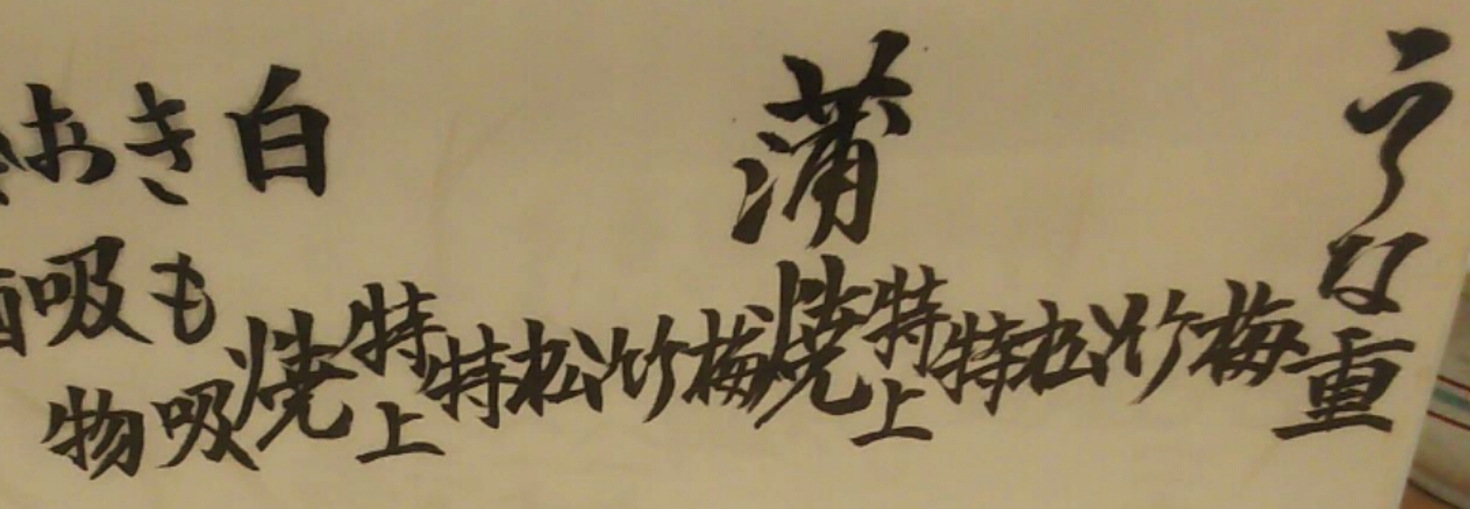 うな重
梅
竹
松
特
特上
蒲焼
梅
竹
松
特
特上
白焼
きも吸
お吸物